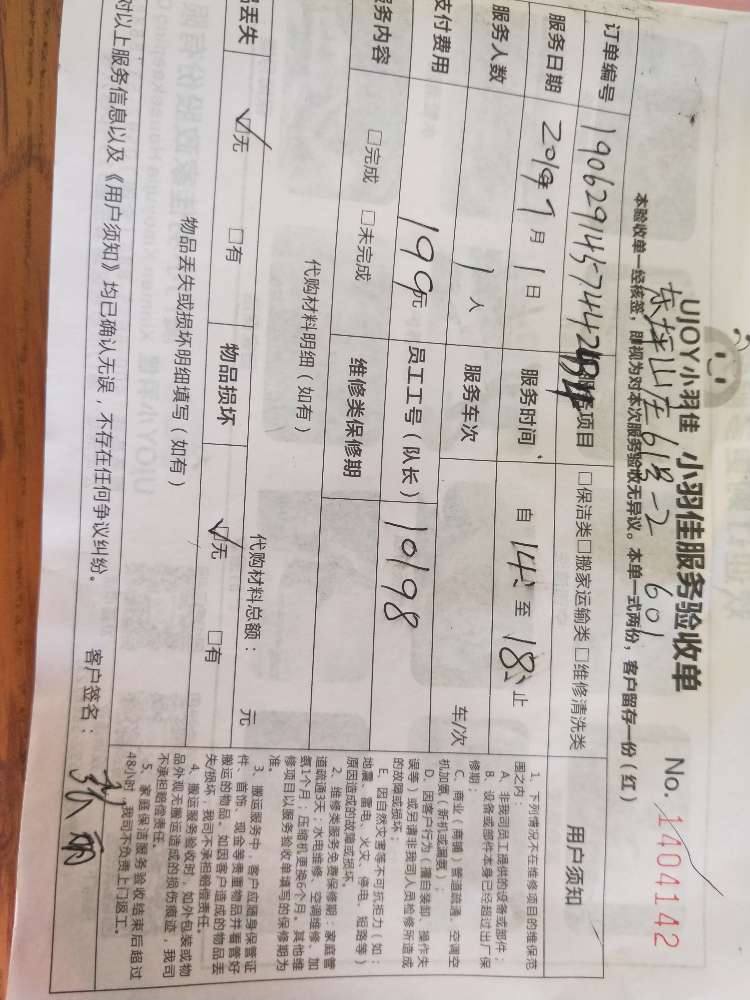 UJOY小羽佳 小羽佳服务验收单 No. 1404142
东坪山庄618-2 601
本验收单一经核签，即视为对本次服务验收无异议。本单一式两份，客户留存一份（红）
订单编号 服务项目 □保洁类□搬家运输类□维修清洗类
服务日期 2019年7月1日 服务时间 自14:至18:止
服务人数 1人 服务车次 车/次
支付费用 199元 员工工号（队长） 10198
务内容 □完成 □未完成 维修类保修期
代购材料明细（如有） 代购材料总额： 元
品丢失 ☑无 □有 物品损坏 ☑无 □有
物品丢失或损坏明细填写（如有）
对以上服务信息以及《用户须知》均已确认无误，不存在任何争议纠纷。 客户签名：张丽
用户须知
1、下列情况不在维修项目的维保范
围之内：
A、非我司员工提供的设备或部件；
B、设备或部件本身已经超过出厂保
修期；
C、商业（商铺）管道疏通、空调空
机加氨（新机或漏氨）；
D、因客户行为（擅自装卸、操作失
误等）或另请非我司人员检修所造成
的故障或损坏；
E、因自然灾害等不可抗拒力（如：
地震、雷电、火灾、停电、短路等）
原因造成的故障或损坏。
2、维修类服务免费保修期：家庭管
道疏通3天；水电维修、空调维修、加
氨1个月；压缩机更换6个月。其他维
修项目以服务验收单填写的保修期为
准。
3、搬运服务中，客户应随身保管证
件、首饰、现金等贵重物品并看管好
搬运的物品。如因客户造成的物品丢
失/损坏，我司不承担赔偿责任。
4、搬运服务验收时，如外包装或物
品外观无搬运造成的损伤痕迹，我司
不承担赔偿责任。
5、家庭保洁服务验收结束后超过
48小时，我司不负责上门返工。